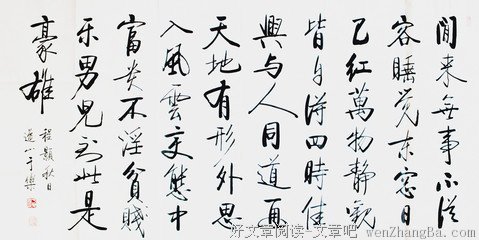 閒来無事不從
容睡觉东窗日
已红萬物静觀
皆自得四時佳
興与人同道通
天地有形外思
入風雲变態中
富贵不淫貧賤
乐男兒到此是
豪雄
程顥秋日
好文章阅读-文章吧 wenZhangBa.com